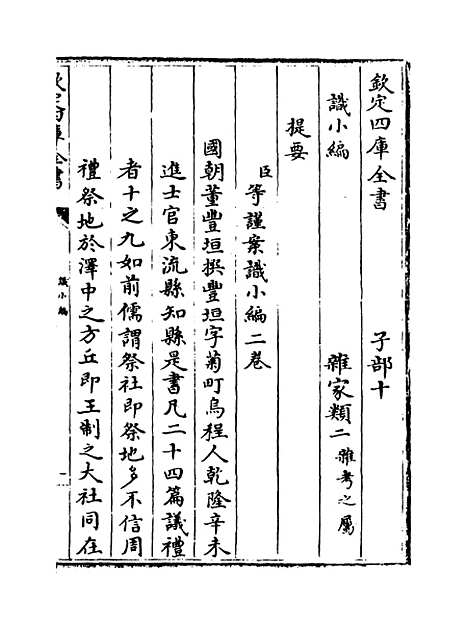 欽定四庫全書 子部十
識小編 雜家類二雜考之屬
提要
臣等謹案識小編二卷
國朝董豐垣撰豐垣字菊町烏程人乾隆辛未
進士官東流縣知縣是書凡二十四篇議禮
者十之九如前儒謂祭社即祭地多不信周
禮祭地於澤中之方丘即王制之大社同在
欽定四庫全書
識小編
一